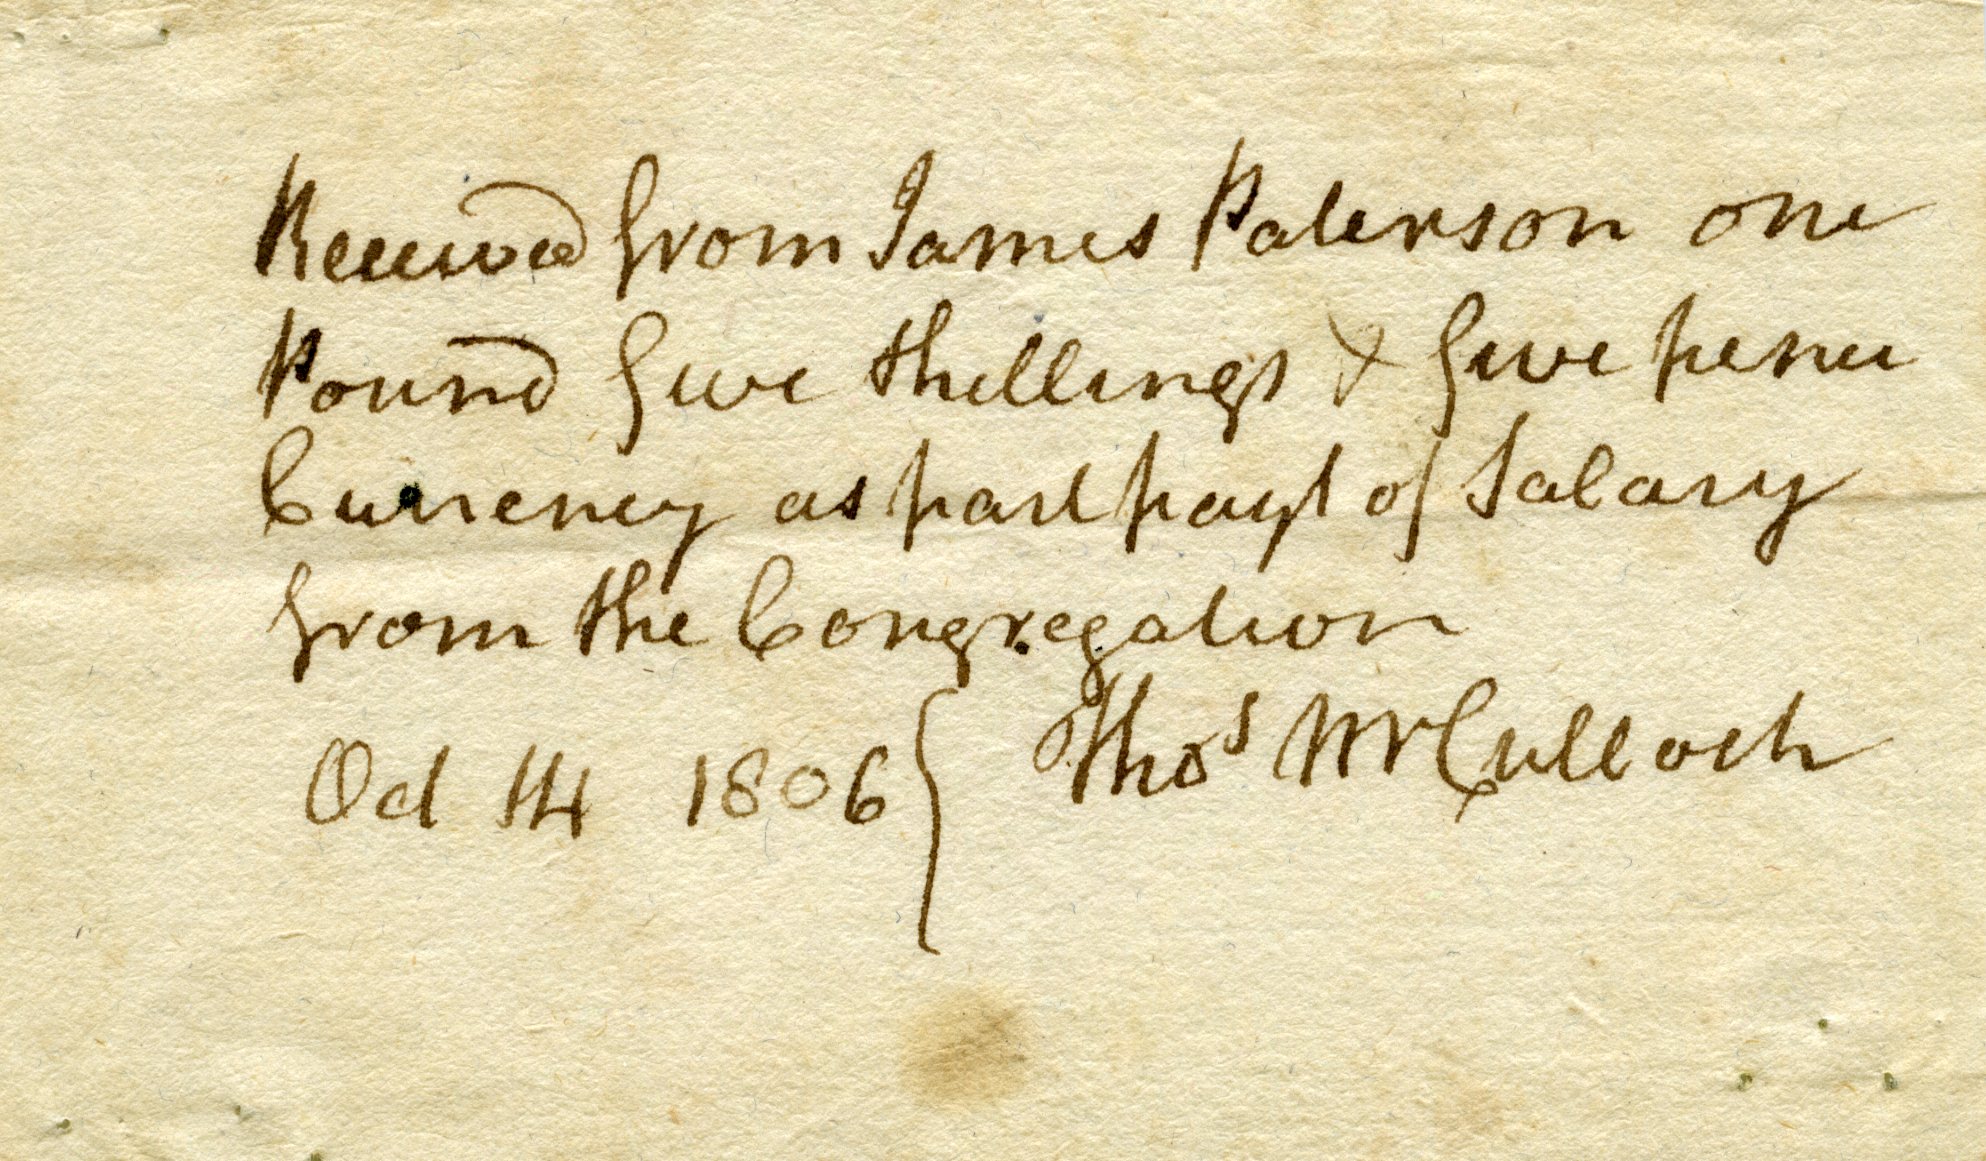 Received from James Paterson one
Pound five shillings & five pence
Currency as part payt of Salary
from the Congregation
Oct 14 1806 } Thos McCulloch